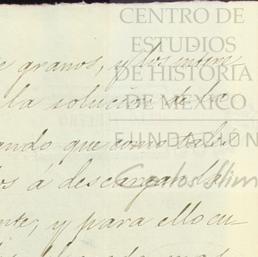 CENTRO DE
ESTUDIOS
DE HISTORIA
DE MÉXICO
FUNDACIÓN
Carlos Slim
granos, y los
la solucion de
ando que como
os á descargar
nte, y para ello cu